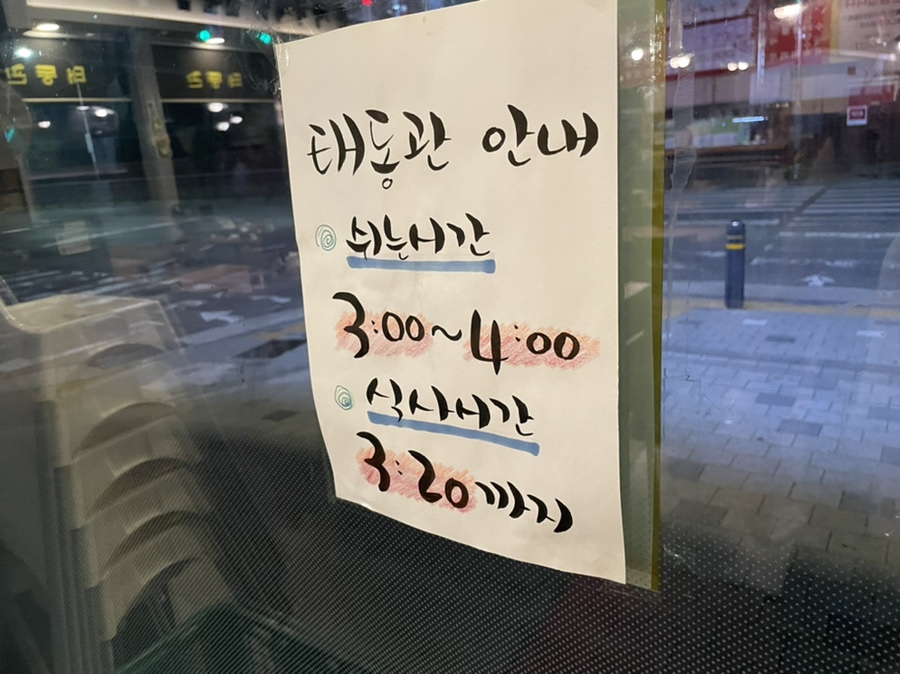 태동관 안내
쉬는시간
3:00~4:00
식사시간
3:20까지